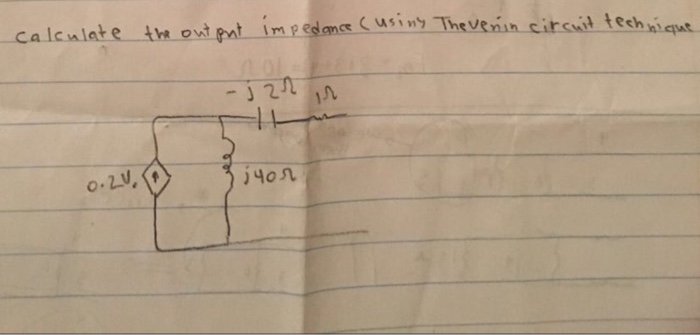 calculate the output impedance (using Thevenin circuit technique
-j2Ω 1Ω
0.2V. j40Ω